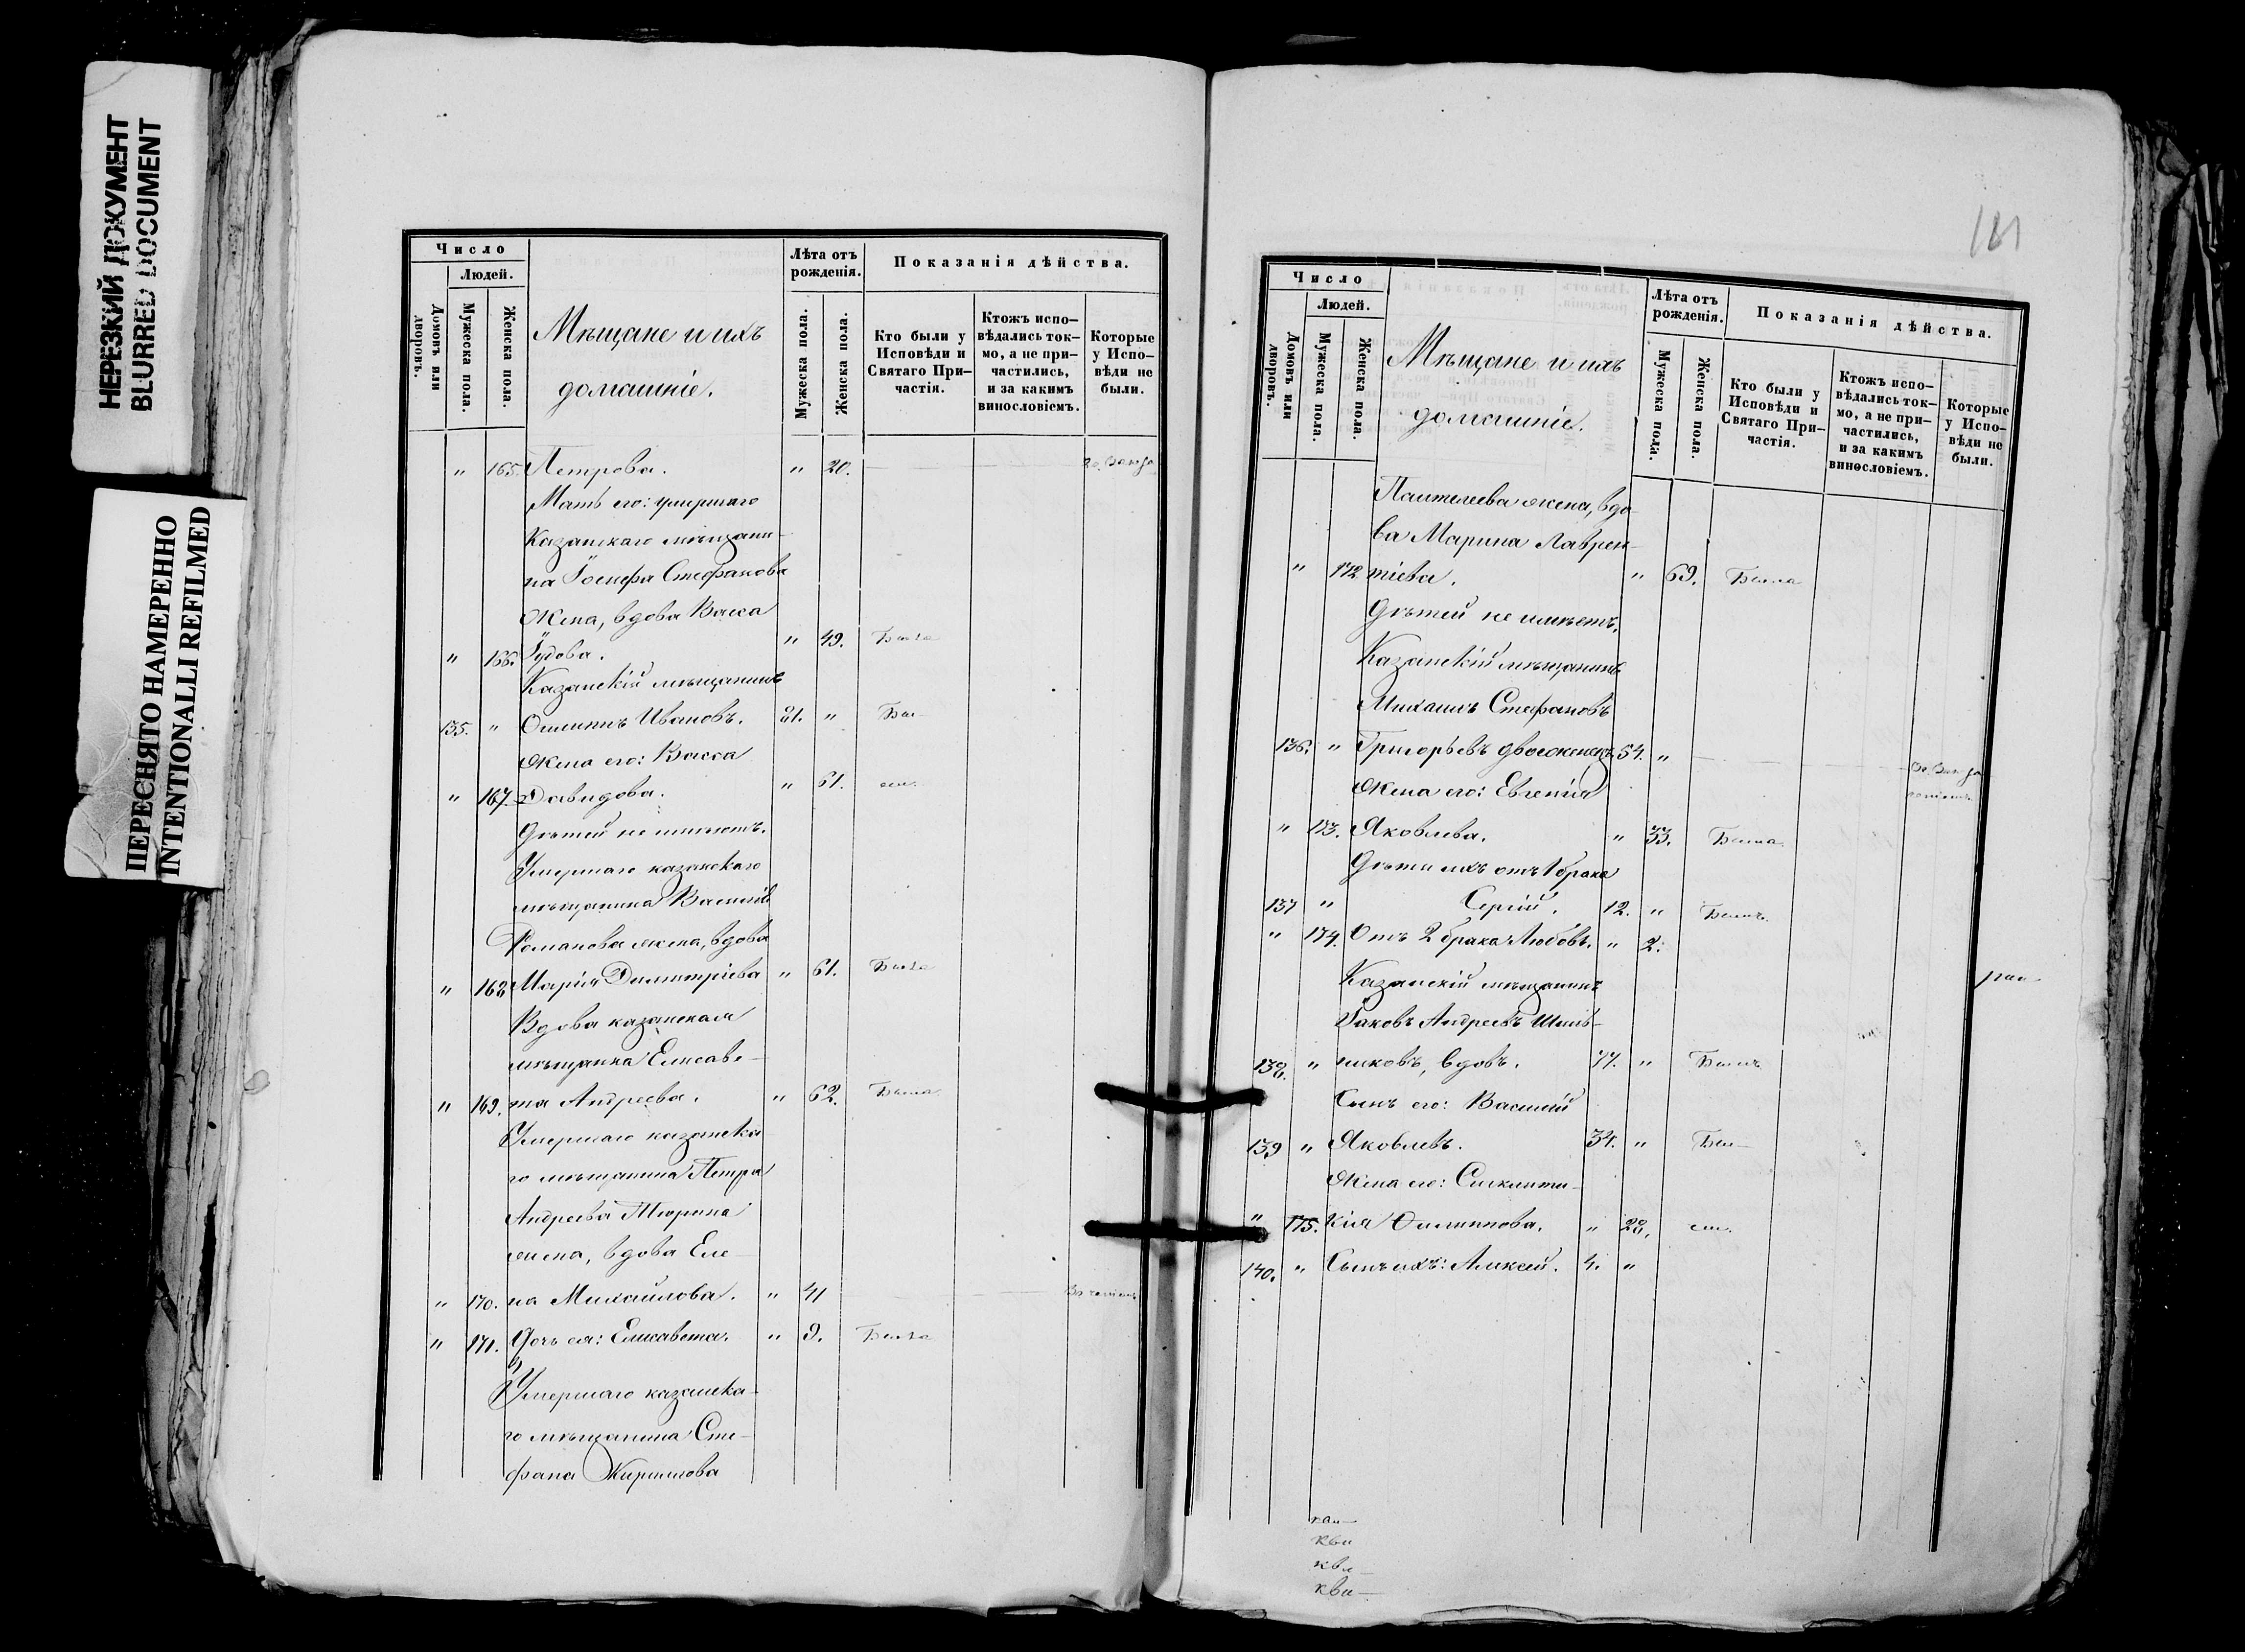 НЕРЕЗКИЙ ДОКУМЕНТ
BLURRED DOCUMENT
ПЕРЕСНЯТО НАМЕРЕННО
INTENTIONALLI REFILMED
Число
Людей.
Домовъ или дворовъ.
Мужеска пола.
Женска пола.
Мѣщане и ихъ
домашніе.
Лѣта отъ рожденія.
Мужеска пола.
Женска пола.
Показанія дѣйства.
Кто были у Исповѣди и Святаго Причастія.
Ктожъ исповѣдались токмо, а не причастились, и за какимъ винословіемъ.
Которые у Исповѣди не были.
" 165. Петрова. " 20.
Мать его: умершаго
Казанскаго мѣщани-
на Іосифа Стефанова
жена, вдова Васса
" 166. Іудова. " 49. Была
Казанскій мѣщанинъ
135. " Филиппъ Ивановъ. 81. " Был-
Жена его: Васса
" 167. Давидова. " 61. ли.
Дѣтей не имѣютъ.
Умершаго казанскаго
мѣщанина Василія
Романова жена, вдова
" 168. Марія Димитріева " 61. Была
Вдова казанская
мѣщанка Елисаве-
" 169. та Андреева. " 62. Была.
Умершаго казанска-
го мѣщанина Петра
Андреева Тюрина
жена, вдова Еле-
" 170. на Михайлова. " 41
" 171. Дочь ея: Елисавета. " 9. Была
Умершаго казанска-
го мѣщанина Сте-
фана Кириллова
121
Число
Людей.
Домовъ или дворовъ.
Мужеска пола.
Женска пола.
Мѣщане и ихъ
домашніе.
Лѣта отъ рожденія.
Мужеска пола.
Женска пола.
Показанія дѣйства.
Кто были у Исповѣди и Святаго Причастія.
Ктожъ исповѣдались токмо, а не причастились, и за какимъ винословіемъ.
Которые у Исповѣди не были.
Пантелеева жена, вдо-
ва Марина Лаврен-
" 172 тіева. " 69. Была
Дѣтей не имѣетъ.
Казанскій мѣщанинъ
Михаилъ Стефановъ
136. " Григорьевъ двоеженецъ 54. "
Жена его: Евгенія
" 173. Яковлева. " 33. Была.
Дѣти ихъ отъ 1 брака
137 " Сергій. 12. " Былъ.
" 174. Отъ 2 брака Любовь. " 2.
Казанскій мѣщанинъ
Іаковъ Андреевъ
138. " никовъ, вдовъ. 77. " Былъ
Сынъ его: Василій
139 " Яковлевъ. 34. " Бы-
Жена его: Синклити-
" 175. кія Филиппова. " 28. ли.
140. " Сынъ ихъ: Алексей. 4. "